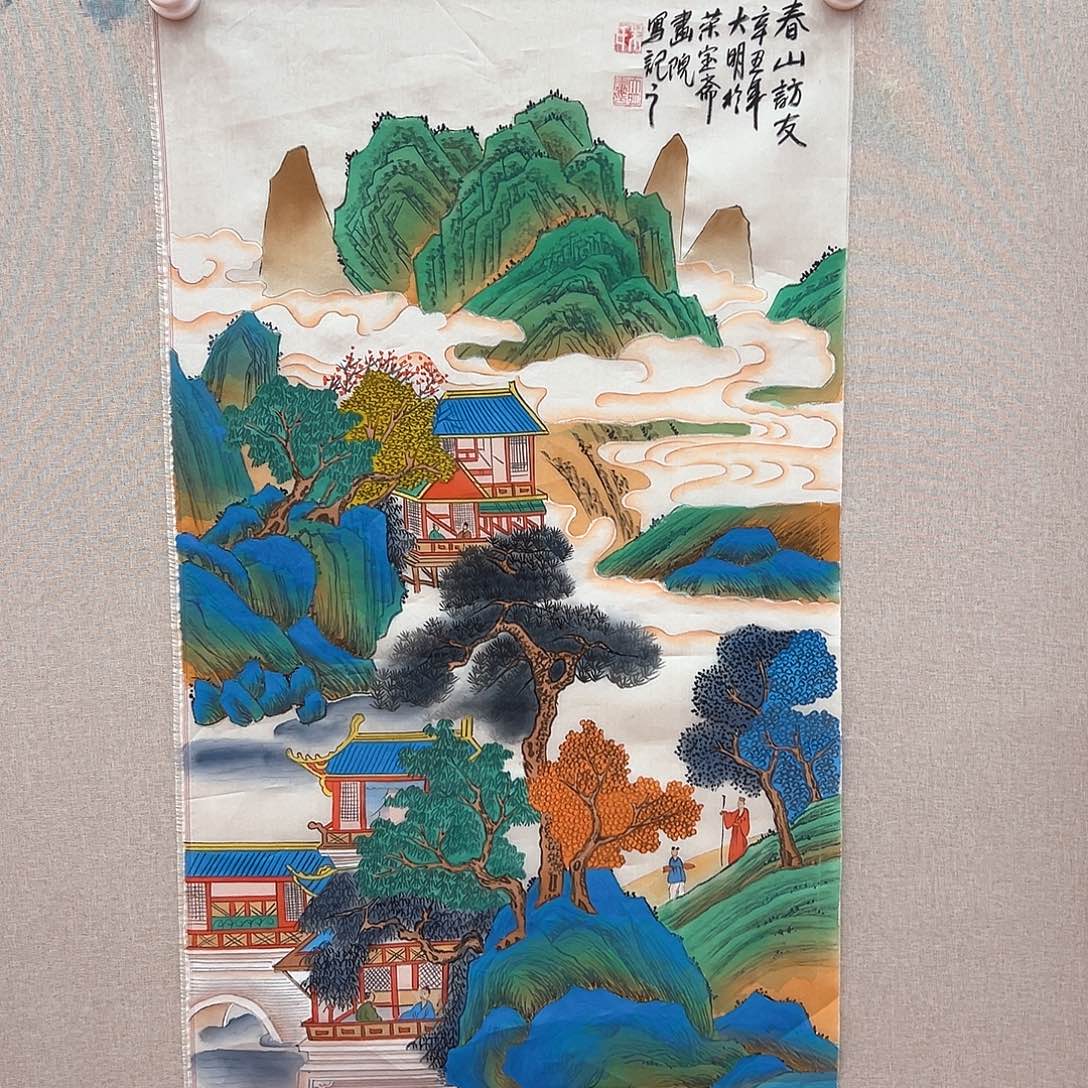 春山訪友
辛丑年
大明於
荣宝斋
畫院
寫記之